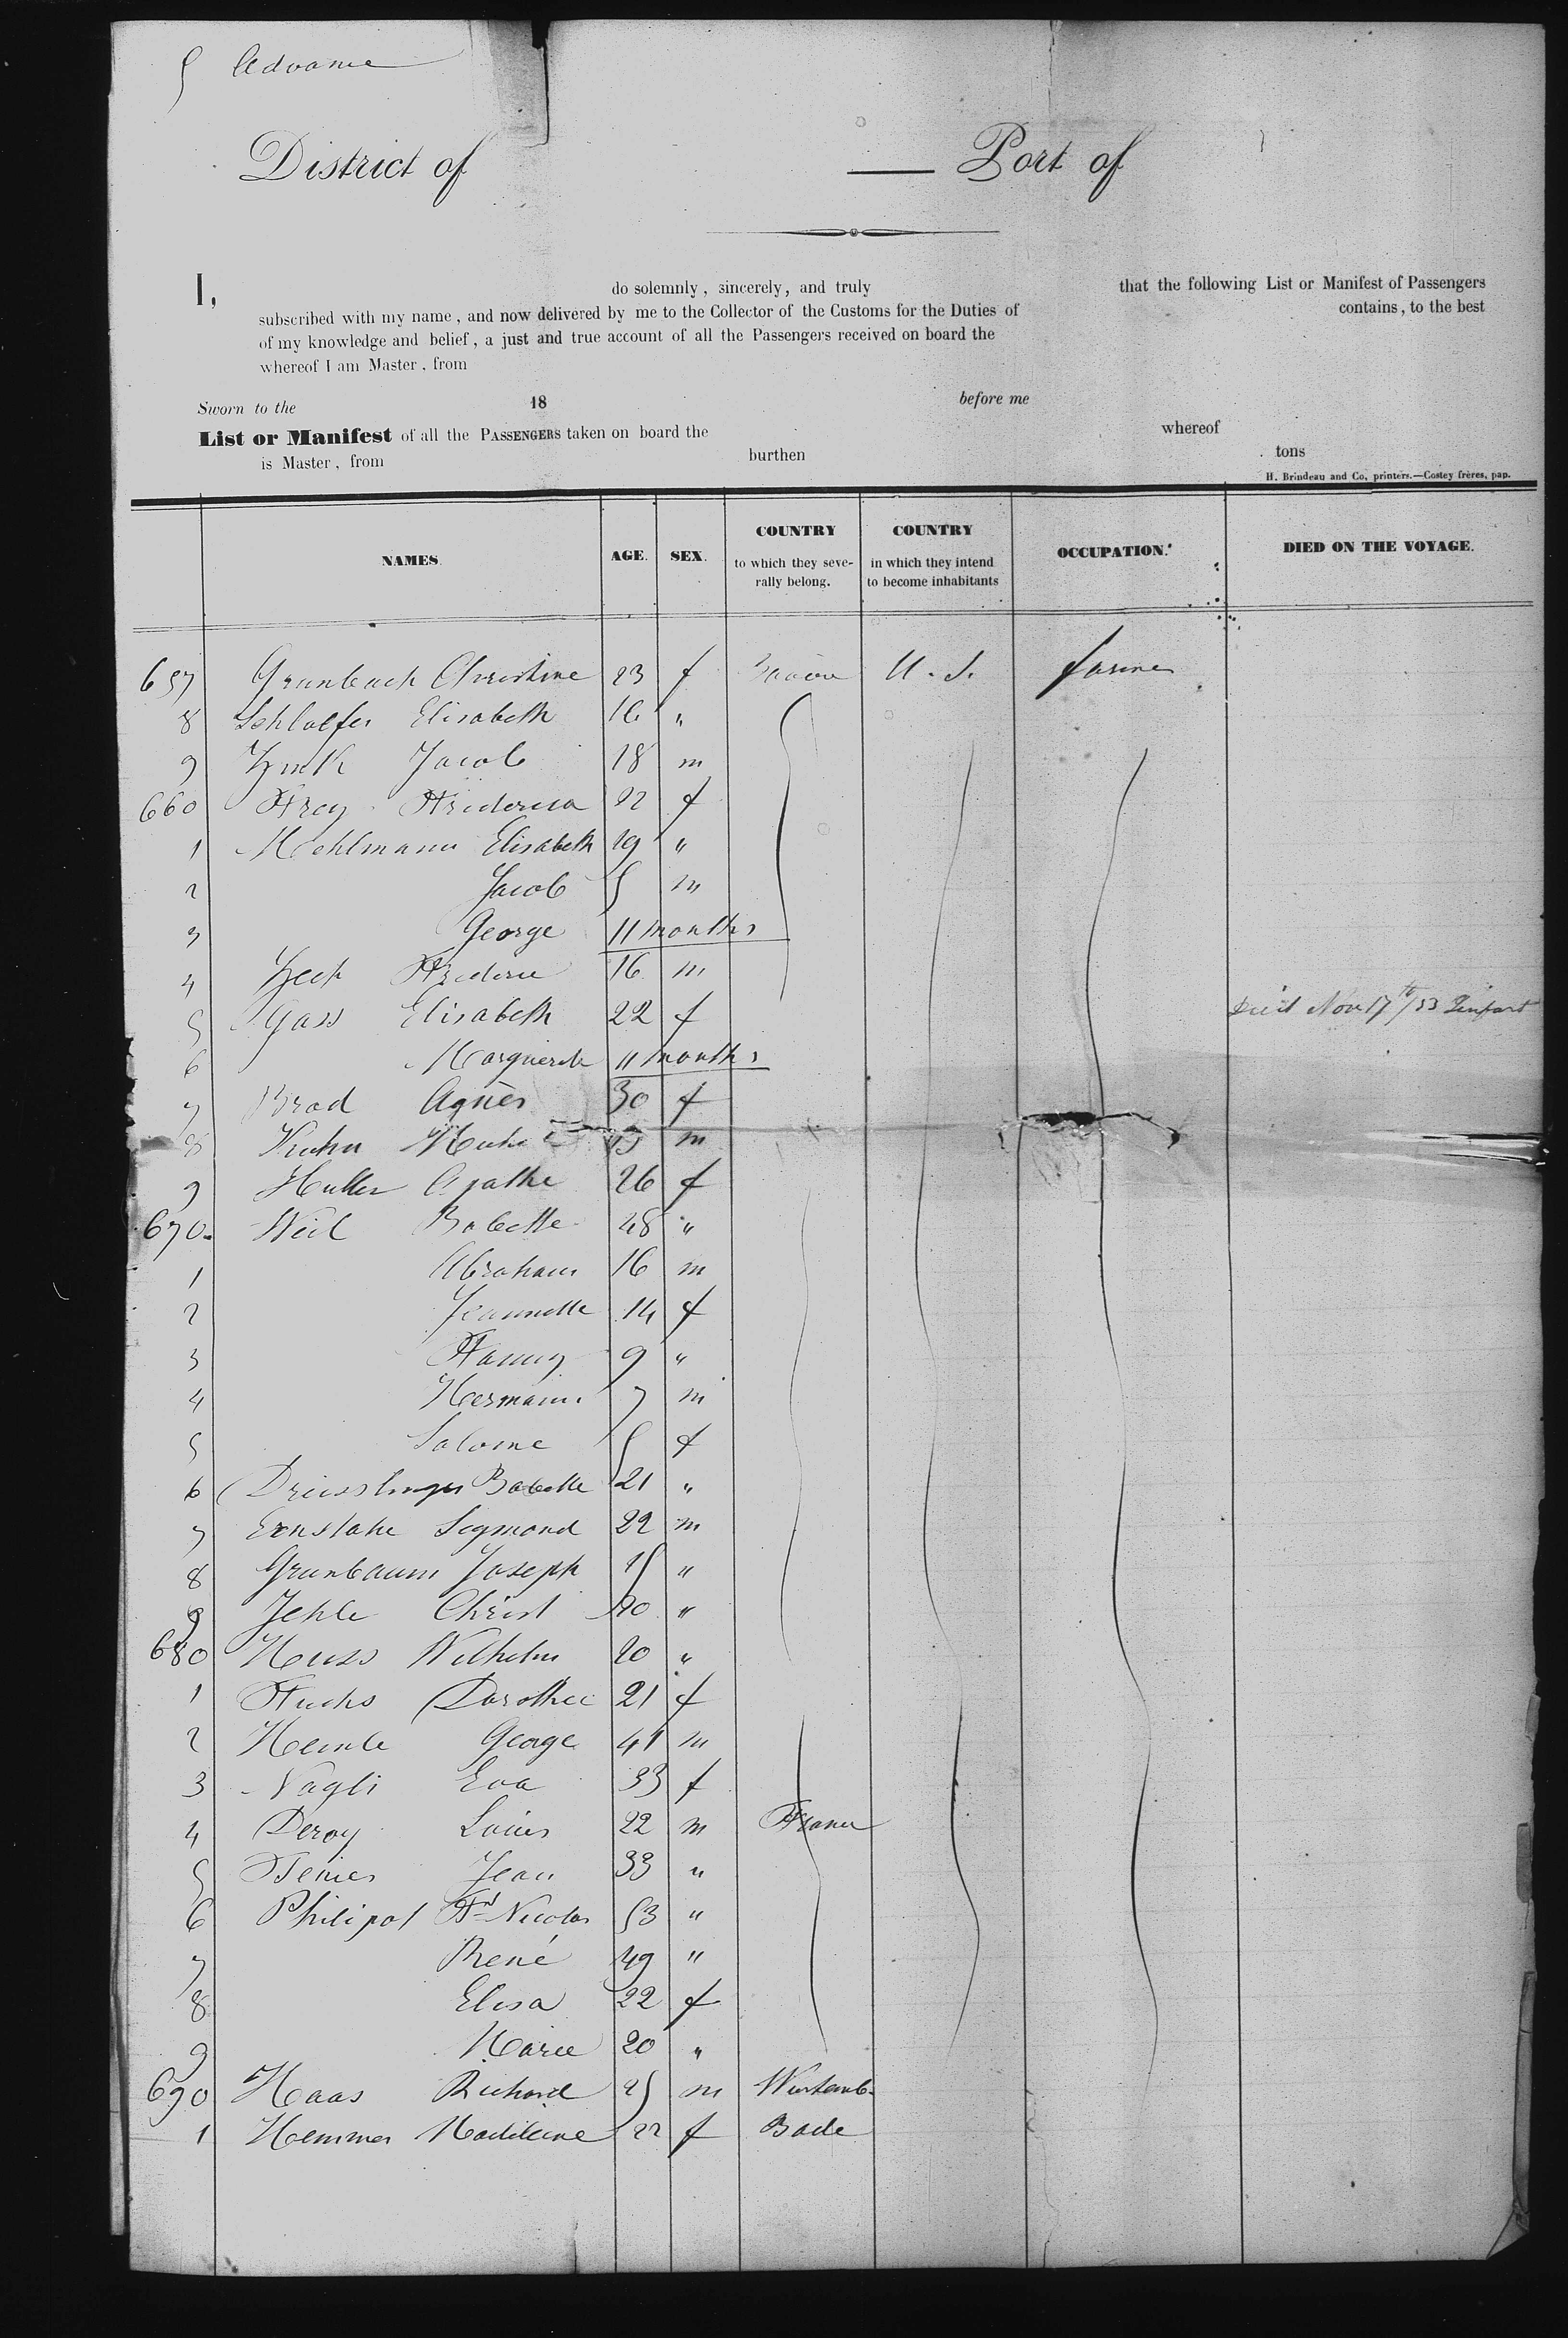 5 Advance
District of — Port of
I, do solemnly, sincerely, and truly that the following List or Manifest of Passengers
subscribed with my name, and now delivered by me to the Collector of the Customs for the Duties of contains, to the best
of my knowledge and belief, a just and true account of all the Passengers received on board the
whereof I am Master, from
Sworn to the 18 before me
List or Manifest of all the PASSENGERS taken on board the whereof
is Master, from burthen tons
H. Brindeau and Co, printers.—Costey frères, pap.
NAMES. AGE. SEX. COUNTRY to which they seve-rally belong. COUNTRY in which they intend to become inhabitants OCCUPATION. DIED ON THE VOYAGE.
657 Grunbach Christine 23 f U. S.
8 Schlaefer Elisabeth 16 "
9 Zink Jacob 18 m
660 Frey Frederica 22 f
1 Mehlmann Elisabeth 19 "
2 Jacob 5 m
3 George 11 months
4 16 m
5 Gass Elisabeth 22 f Died Nov 17th/53
6 Marguerite 11 months
7 Brod Agnès 30 f
8 Kuhn m
9 Agathe 26 f
670 Weil Babette 48 "
1 Abraham 16 m
2 Jeannette 14 f
3 Fanny 9 "
4 Hermann 7 m
5 Salome 5 f
6 Babette 21 "
7 Sigmond 22 m
8 Grunbaum Joseph 25 "
9 Jehle Christ 20 "
680 Wilhelm 20 "
1 Fuchs Dorothee 21 f
2 George 41 m
3 Nagli Eva 33 f
4 Deroy Louis 22 m France
5 Jean 33 "
6 Philipot Nicolas 53 "
7 René 49 "
8 Elisa 22 f
9 Marie 20 "
690 Haas Richard 25 m Wurtemb.
1 Hemmer Madeleine 22 f Bade